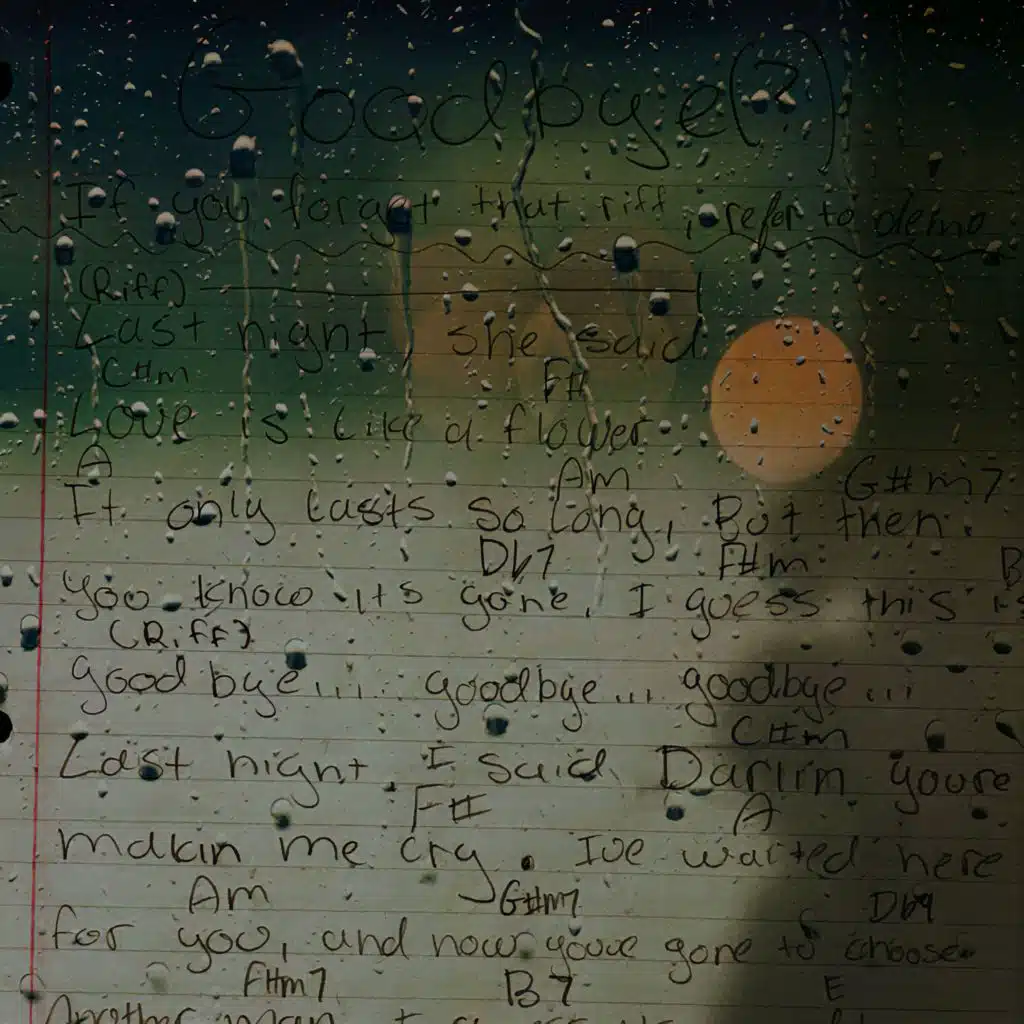 Goodbye(?)
* If you forget that riff, refer to demo
(Riff)
Last night, she said
C#m F#
Love is like a flower
A Am G#m7
It only lasts so long, But then
Db7 F#m B
you know its gone, I guess this is
(Riff)
goodbye... goodbye... goodbye...
C#m
Last night I said Darlin youre
F# A
makin me cry. Ive waited here
Am G#m7 Db9
for you, and now youve gone to choose
F#m7 B7 E
Another man I guess